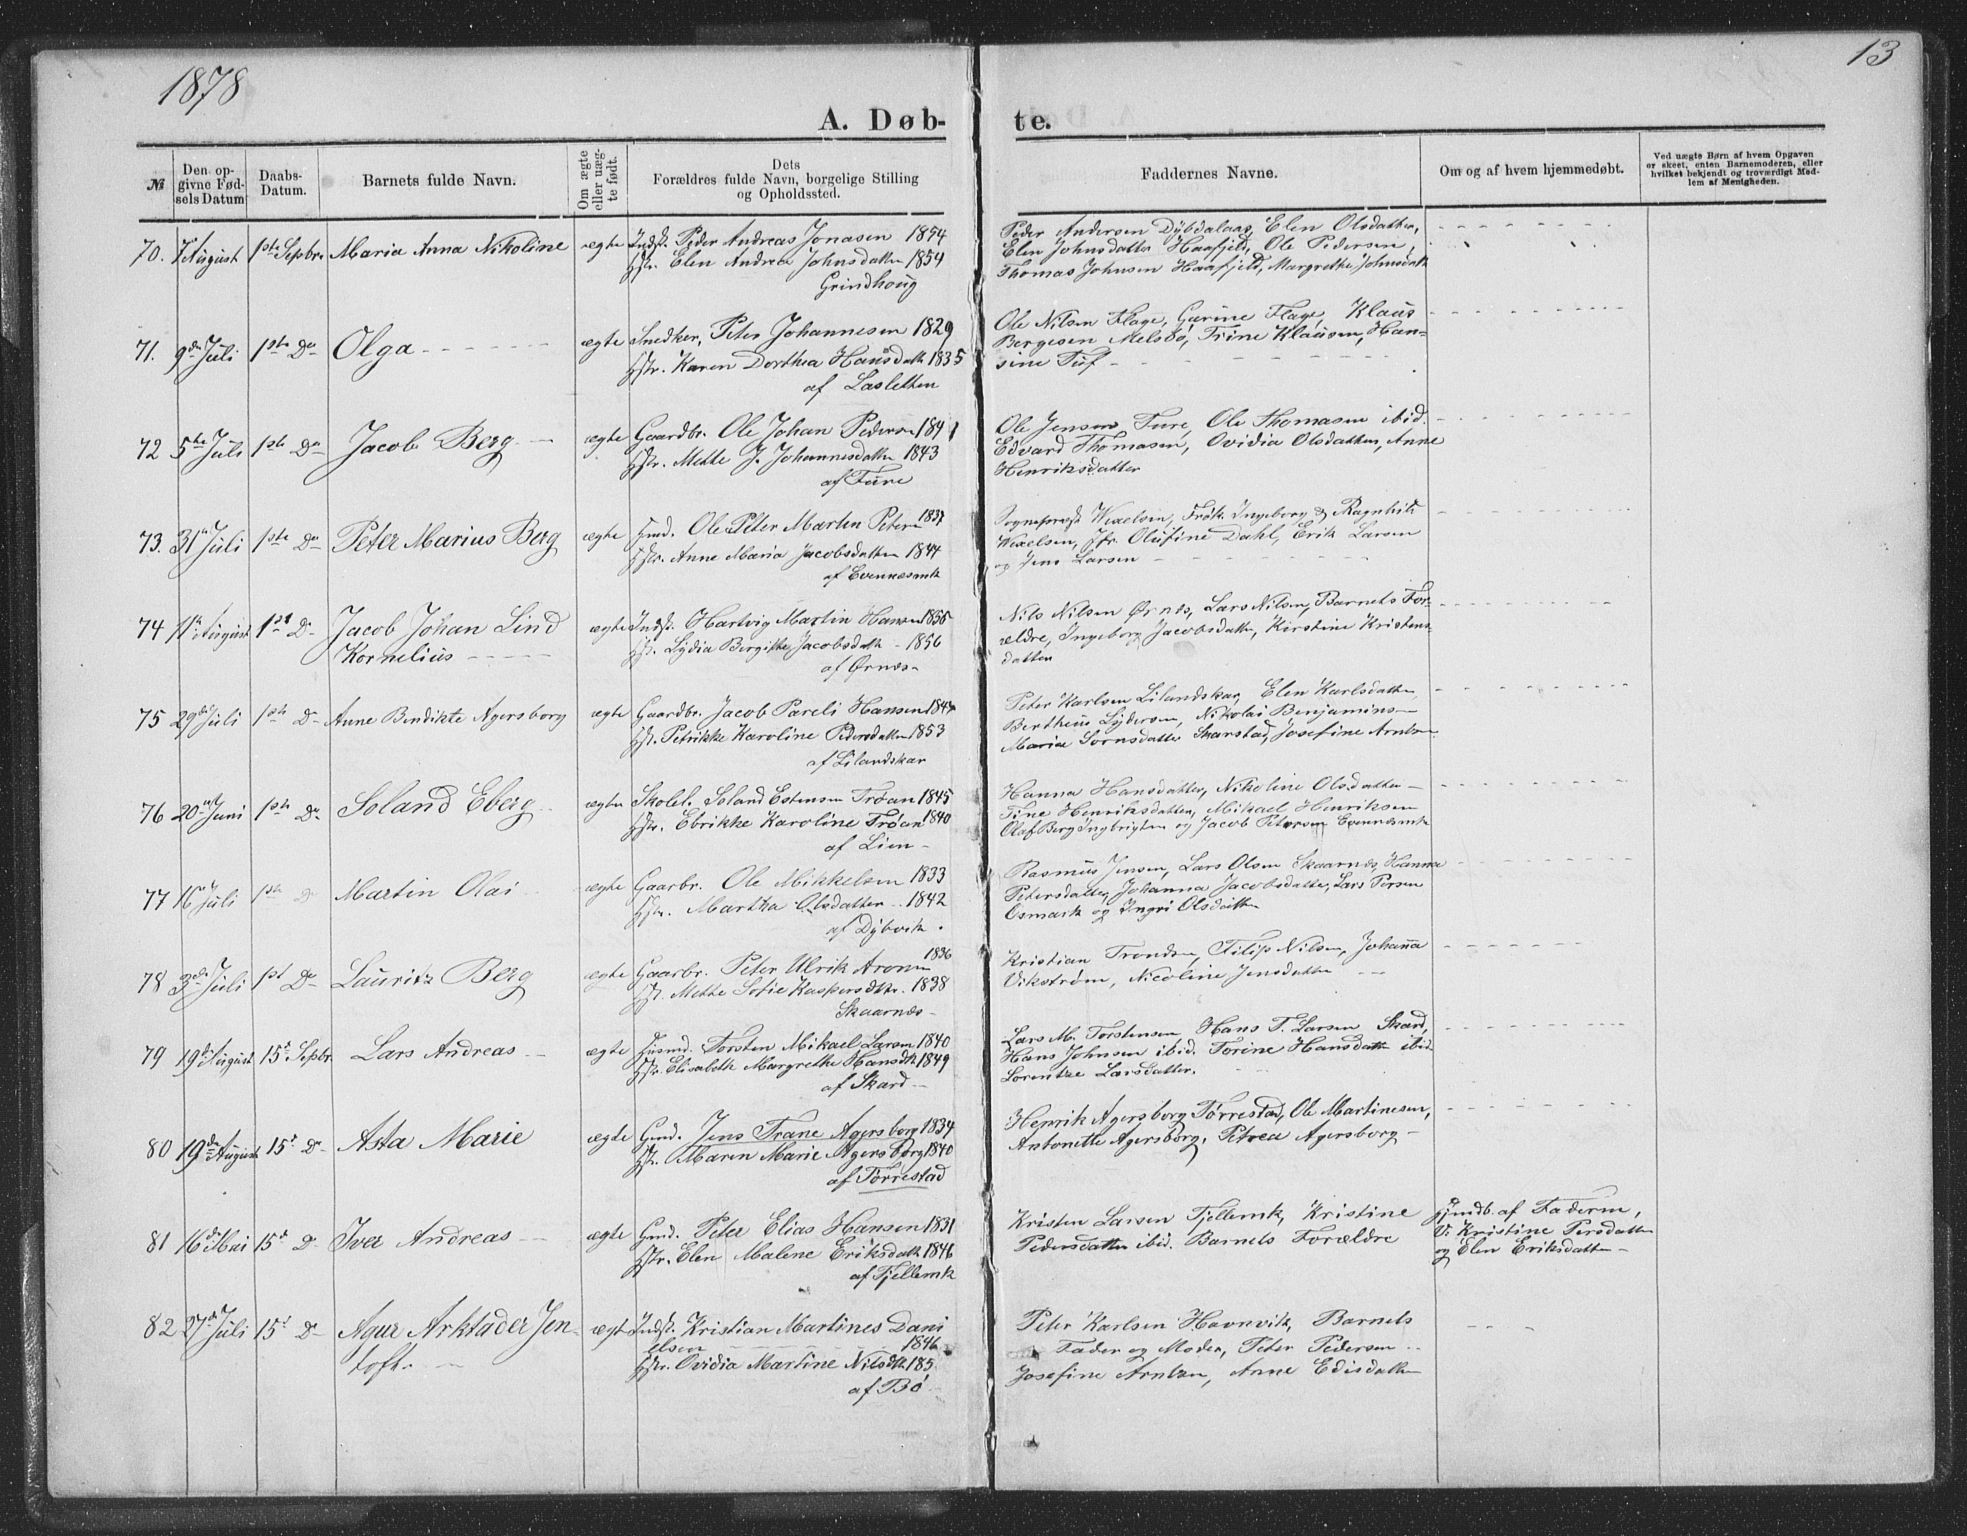 1878
13
A. Døb-
te.
№
Den op-
givne Fød-
sels Datum
Daabs-
Datum.
Barnets fulde Navn.
Om ægte
eller uæg-
te født.
Dets
Forældres fulde Navn, borgelige Stilling
og Opholdssted.
Faddernes Navne.
Om og af hvem hjemmedøbt.
Ved uægte Børn af hvem Opgaven
er skeet, enten Barnemoderen, eller
hvilket bekjendt og troværdigt Med-
lem af Menigheden.
70. 7 August 1ste Sepbr. Maria Anna Nikoline ægte Indst. Peder Andreas Jonasen 1854
Hstr. Elen Andrea Johnsdatter 1854
Grindhoug
Peder Andersen Dybdalaas, Elen Olsdatter,
Elen Johnsdatter Haafjeld, Ole Pedersen,
Thomas Johnsen Haafjeld, Margrethe Johnsdatt
71. 9de Juli 1ste Do Olga ægte Snedker, Peter Johannesen 1829
Hstr. Karen Dorthea Hansdatt 1835
af Lasletten
Ole Nilsen Flage, Gurine Flage, Klaus
Bergesen Melsbø, Trine Klausen, Han-
sine Tuf
72 5te Juli 1ste Do Jacob Berg ægte Gaardbr. Ole Johan Pedersen 1841
Hstr. Mette J. Johannesdatter 1843
af Fure
Ole Jensen Fure, Ole Thomasen ibid.
Edvard Thomasen, Ovidia Olsdatter, Anne
Henriksdatter
73. 31te Juli 1ste Do Peter Marius Berg ægte Gmd. Ole Peter Martin Peters 1837
Hstr. Anne Maria Jacobsdatter 1844
af Evenæsmk
Sognepræst Wexelsen, Frøk. Ingeborg & Ragnhild
Wexelsen, Jfr. Olufine Dahl, Erik Larsen
og Jens Larsen
74 11te August 1st Do Jacob Johan Lind
Kornelius
ægte Indst. Hartvig Martin Hansen 1835
Hst. Lydia Bergithe Jacobsdatt 1856
af Ørnæs
Nils Nilsen Ørnes, Lars Nilsen, Barnets For-
ældre, Ingeborg Jacobsdatter, Kirstine Kristens
datter
75 29de Juli 1ste Do Anne Bendikte Agersborg ægte Gaardbr. Jacob Pareli Hansen 184
Hst. Petrikke Karoline Pedersdatter 1853
af Lilandskar
Peter Karlsen Lilandskar, Elen Karlsdatter,
Bertheus Lydersen, Nikolai Benjamins
Maria Sornsdatter Skarstad, Josefine Arntsen
76 20de Juni 1ste Do Soland Eberg ægte Skolel. Soland Estensen Trøan 1845
Hstr. Ebrikke Karoline Trøan 1840
af Lien
Hanna Hansdatter, Nikoline Olsdatter
Tine Henriksdatter, Mikael Henriksen
Olaf Berg Ingbrigtsen og Jacob Petersen Evenæsmk
77 16 Juli 1ste D Martin Olai ægte Gaarbr. Ole Mikkelsen 1833
Hstr. Martha Olsdatter 1842
af Dybvik.
Rasmus Jensen, Lars Olsen Skaarnæs, Hanna
Petersdatter, Johanna Jacobsdatter, Lars Persen
Osmark og Ingri Olsdatter
78 3de Juli 1st Do Lauritz Berg ægte Gaarbr. Peter Ulrik Aronsen 1836
Hst. Mette Sofie Kaspersdtr. 1838
Skaarnæs
Kristian Trondsen, Filip Nilsen, Johanna
Vikstrøm, Nicoline Jensdatter
79 19de August 15de Sepbr. Lars Andreas ægte Husmd. Torsten Mikael Larsen 1840
Hstr. Elisabeth Margrethe Hansdtr 1849
af Skard
Lars M. Torstensen, Hans T. Larsen Skard,
Hans Johnsen ibid. Torine Hansdatter ibid.
Lorentze Larsdatter.
80 19de August 15de Do Asta Marie ægte Gmd. Jens Trane Agersborg 1834
Hstr. Maren Marie Agersborg 1840
af Tørrestad
Henrik Agersborg Tørrestad, Ole Martinesen,
Antonette Agersborg, Petrea Agersborg
81 16de Mai 15de Do Iver Andreas ægte Gmd. Peter Elias Hansen 1831
Hstr. Elen Malene Eriksdatt 1846
af Fjellemk
Kristen Larsen Fjellemk, Kristine
Pedersdatter ibid. Barnets Forældre
Hjmdb. af Faderen,
V. Kristine Persdatter
og Elen Eriksdatter
82 27de Juli 15de Do Agur Arktader Jen-
toft.
ægte Indst. Kristian Martines Dani
elsen 1846
Hstr. Ovidia Martine Nilsdtr 185
af Bø
Peter Karlsen Havnvik, Barnets
Fader og Moder, Peter Pedersen
Josefine Arntzen, Anne Edisdatter